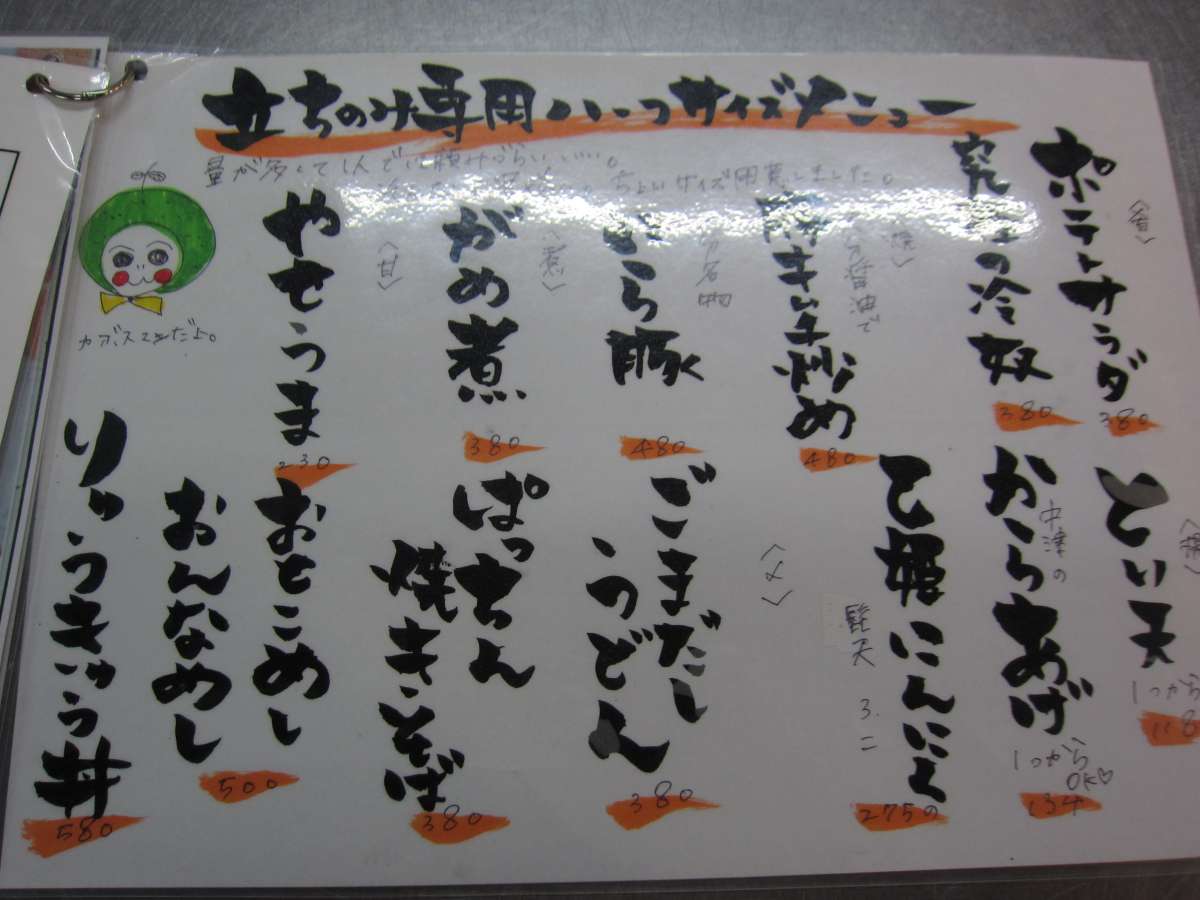 立ちのみ専用ハーフサイズメニュー
量が多くて1人でい頼みづらい、、、。
ちょいサイズ用意しました。
〈香〉
ポテトサラダ
380
冷奴
380
醤油で
豚キムチ炒め
480
名物
豚
480
〈煮〉
がめ煮
380
〈甘〉
やせうま
230
カボスマンだよ。
とい天
1つから
118
中津の
からあげ
1つから
OK♡
134
乙姫にんにく
275の
〈〆〉
ごまだし
うどん
380
ぱっちん
焼きそば
380
おとこめし
おんなめし
500
りゅうきゅう丼
580